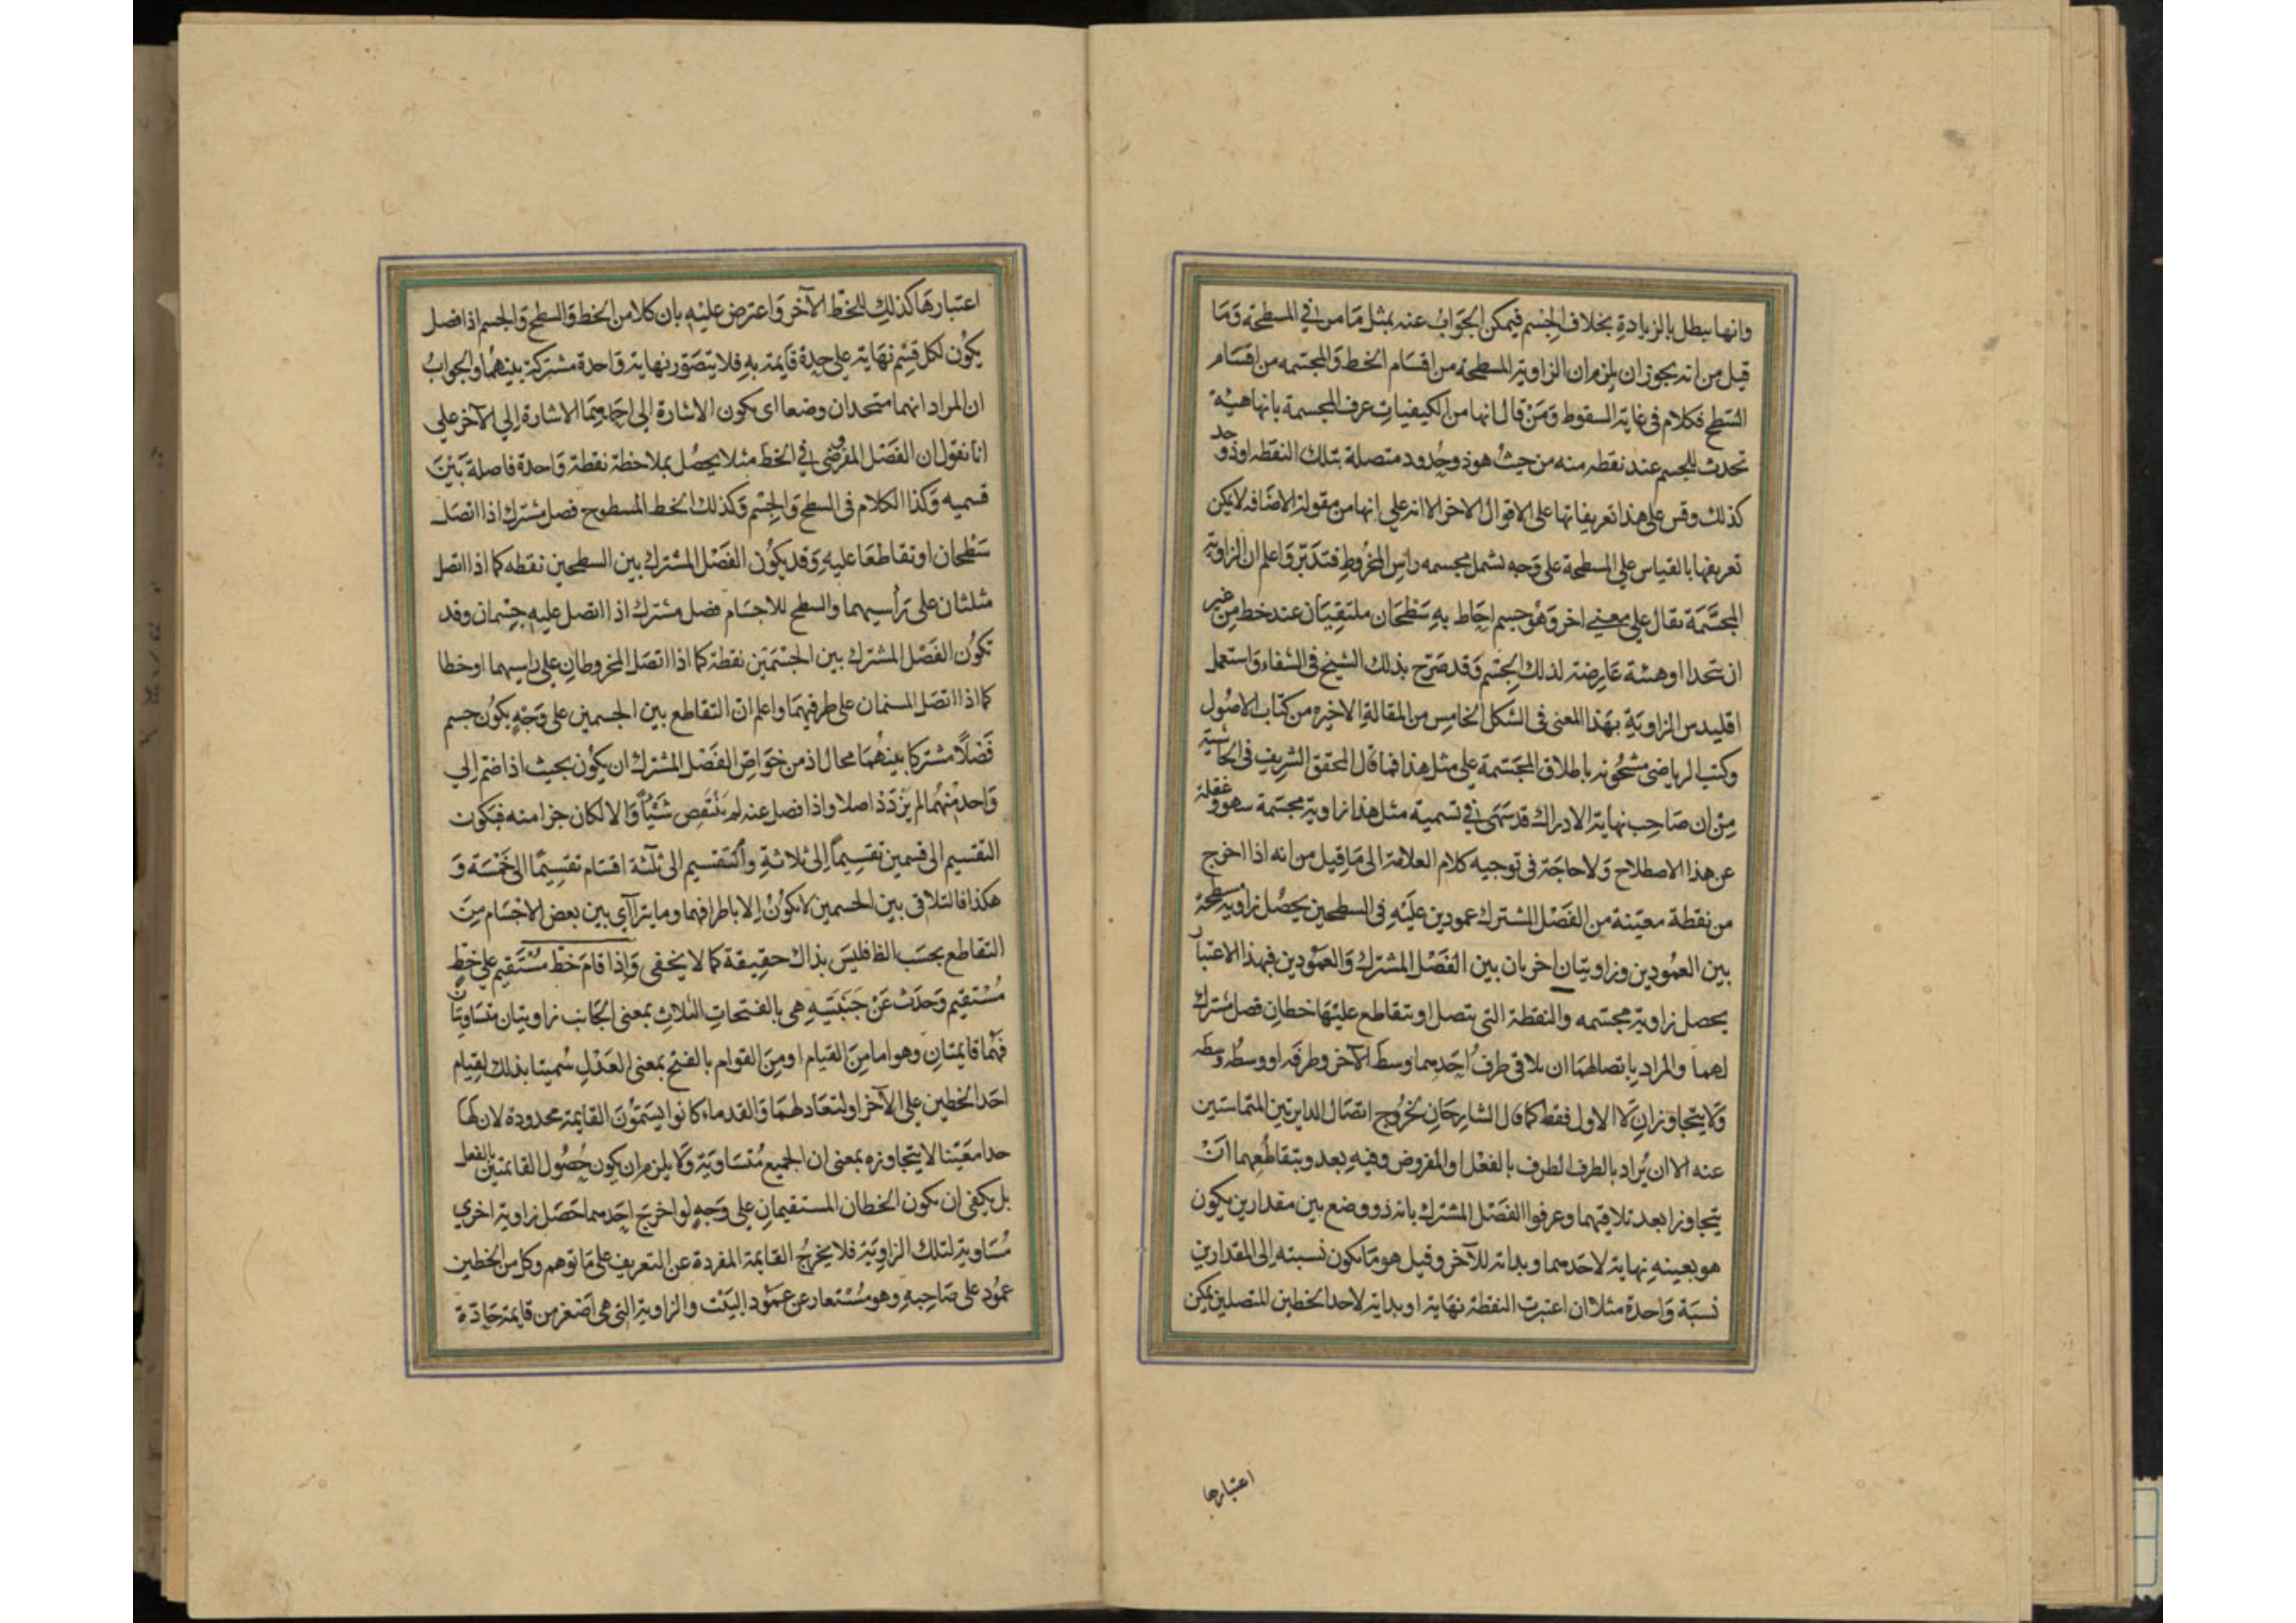 وانها يبطل بالزيادة بخلاف الجسم فيمكن الجواب عنه بمثل ما مر في المسطحة وما
قيل من انه يجوز ان يلزم ان الزاوية المسطحة من اقسام الخط والمجسمه من اقسام
السطح فكلام في غاية السقوط ومن قال انها من الكيفيات عرف المجسمة بانها هيئة
تحدث للجسم عند نقطه منه من حيث هو ذو حدود متصلة بتلك النقطه او ذو حد
كذلك وقس على هذا تعريفاتها على الاقوال الاخر الا انه علي انها من مقولة الاضافه لا يمكن
تعريفها بالقياس علي المسطحة على وجه يشمل مجسمه راس المخروط فتدبر واعلم ان الزاوية
المجسمة تقال على معني اخر وهو جسم احاط به سطحان ملتقيان عند خط من غير
ان يتحدا او هيئة عارضة لذلك الجسم وقد صرح بذلك الشيخ في الشفاء واستعمل
اقليدس الزاوية بهذا المعنى في الشكل الخامس من المقالة الاخيره من كتاب الاصول
وكتب الرياضي مشحونه باطلاق المجسمة على مثل هذا فما قال المحقق الشريف في الحاشية
من ان صاحب نهاية الادراك قد سهى في تسمية مثل هذا زاوية مجسمة سهو وغفلة
عن هذا الاصطلاح ولا حاجة في توجيه كلام العلامة الى ما قيل من انه اذا اخرج
من نقطة معينة من الفصل المشترك عمودين عليه في السطحين يحصل زاوية مسطحة
بين العمودين وزاويتان اخريان بين الفصل المشترك والعمودين فبهذا الاعتبار
يحصل زاوية مجسمه والنقطة التي يتصل او يتقاطع عليها خطان فصل مشترك
لهما والمراد باتصالهما ان يلاقي طرف احدهما وسط الآخر وطرفه او وسطه وسطه
ولا يتجاوزان لا الاول فقط كما قال الشارحان لخروج اتصال الدايرتين المتماستين
عنه الا ان يراد بالطرف الطرف بالفعل او المفروض وفيه بعد وبتقاطعهما ان
يتجاوزا بعد تلاقيهما وعرفوا الفصل المشترك بانه ذو وضع بين مقدارين يكون
هو بعينه نهاية لاحدهما وبداية للآخر وقيل هو ما يكون نسبته إلى المقدارين
نسبة واحدة مثلا ان اعتبرت النقطة نهاية او بداية لاحد الخطين المتصلين يمكن
اعتبارها
اعتبارها كذلك للخط الآخر واعترض عليه بان كلا من الخط والسطح والجسم اذا فصل
يكون لكل قسم نهاية على حدة قايمة به فلا يتصور نهاية واحدة مشتركة بينهما والجواب
ان المراد انهما متحدان وضعا اى يكون الاشارة الى احدهما الاشارة إلي الآخر علي
انا نقول ان الفصل المفروض في الخط مثلا يحصل بملاحظة نقطة واحدة فاصلة بين
قسميه وكذا الكلام في السطح والجسم وكذلك الخط للسطوح فصل مشترك اذا اتصل
سطحان او تقاطعا عليه وقد يكون الفصل المشترك بين السطحين نقطه كما اذا اتصل
مثلثان على رأسيهما والسطح للاجسام فصل مشترك اذا اتصل عليه جسمان وقد
تكون الفصل المشترك بين الجسمين نقطة كما اذا اتصل المخروطان على راسيهما او خطا
كما اذا اتصل المسنمان على طرفيهما واعلم ان التقاطع بين الجسمين على وجه يكون جسم
فصلا مشتركا بينهما محال اذ من خواص الفصل المشترك ان يكون بحيث اذا ضم إلي
واحد منهما لم يزدد اصلا واذا فصل عنه لم ينتقص شيئا والا لكان جزا منه فيكون
التقسيم الى قسمين تقسيما إلى ثلاثة والتقسيم الى ثلثة اقسام تقسيما الى خمسة و
هكذا فالتلاقي بين الجسمين لا يكون إلا باطرافهما وما يترآاي بين بعض الاجسام من
التقاطع بحسب الظ فليس بذاك حقيقة كما لا يخفى واذا قام خط مستقيم على خط
مستقيم وحدث عن جنبتيه هي بالفتحات الثلاث بمعنى الجانب زاويتان متساويتان
فهما قايمتان وهو اما من القيام او من القوام بالفتح بمعنى العدل سميتا بذلك لقيام
احد الخطين على الآخر او لتعادلهما والقدماء كانوا يسمون القايمة محدودة لان لها
حدا معينا لا يتجاوزه بمعنى ان الجميع متساوية ولا يلزم ان يكون حصول القايمتين بالفعل
بل يكفي ان يكون الخطان المستقيمان على وجه لو اخرج احدهما حصل زاوية اخري
مساوية لتلك الزاوية فلا يخرج القايمة المفردة عن التعريف على ما توهم وكل من الخطين
عمود على صاحبه وهو مستعار عن عمود البيت والزاوية التي هي اصغر من قايمة حادة